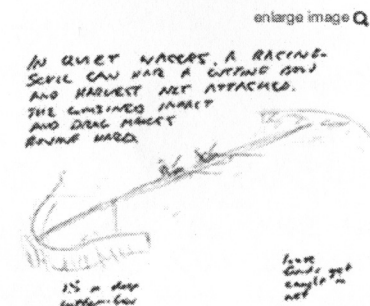 enlarge image
IN QUIET WATERS, A RACING-
SCULL CAN HAVE A CUTTING BOW
AND HARVEST NET ATTACHED.
THE COMBINED IMPACT
AND DRAG MAKES
ROWING HARD.
15 m deep
cutter-bar
loose
get
caught in
net